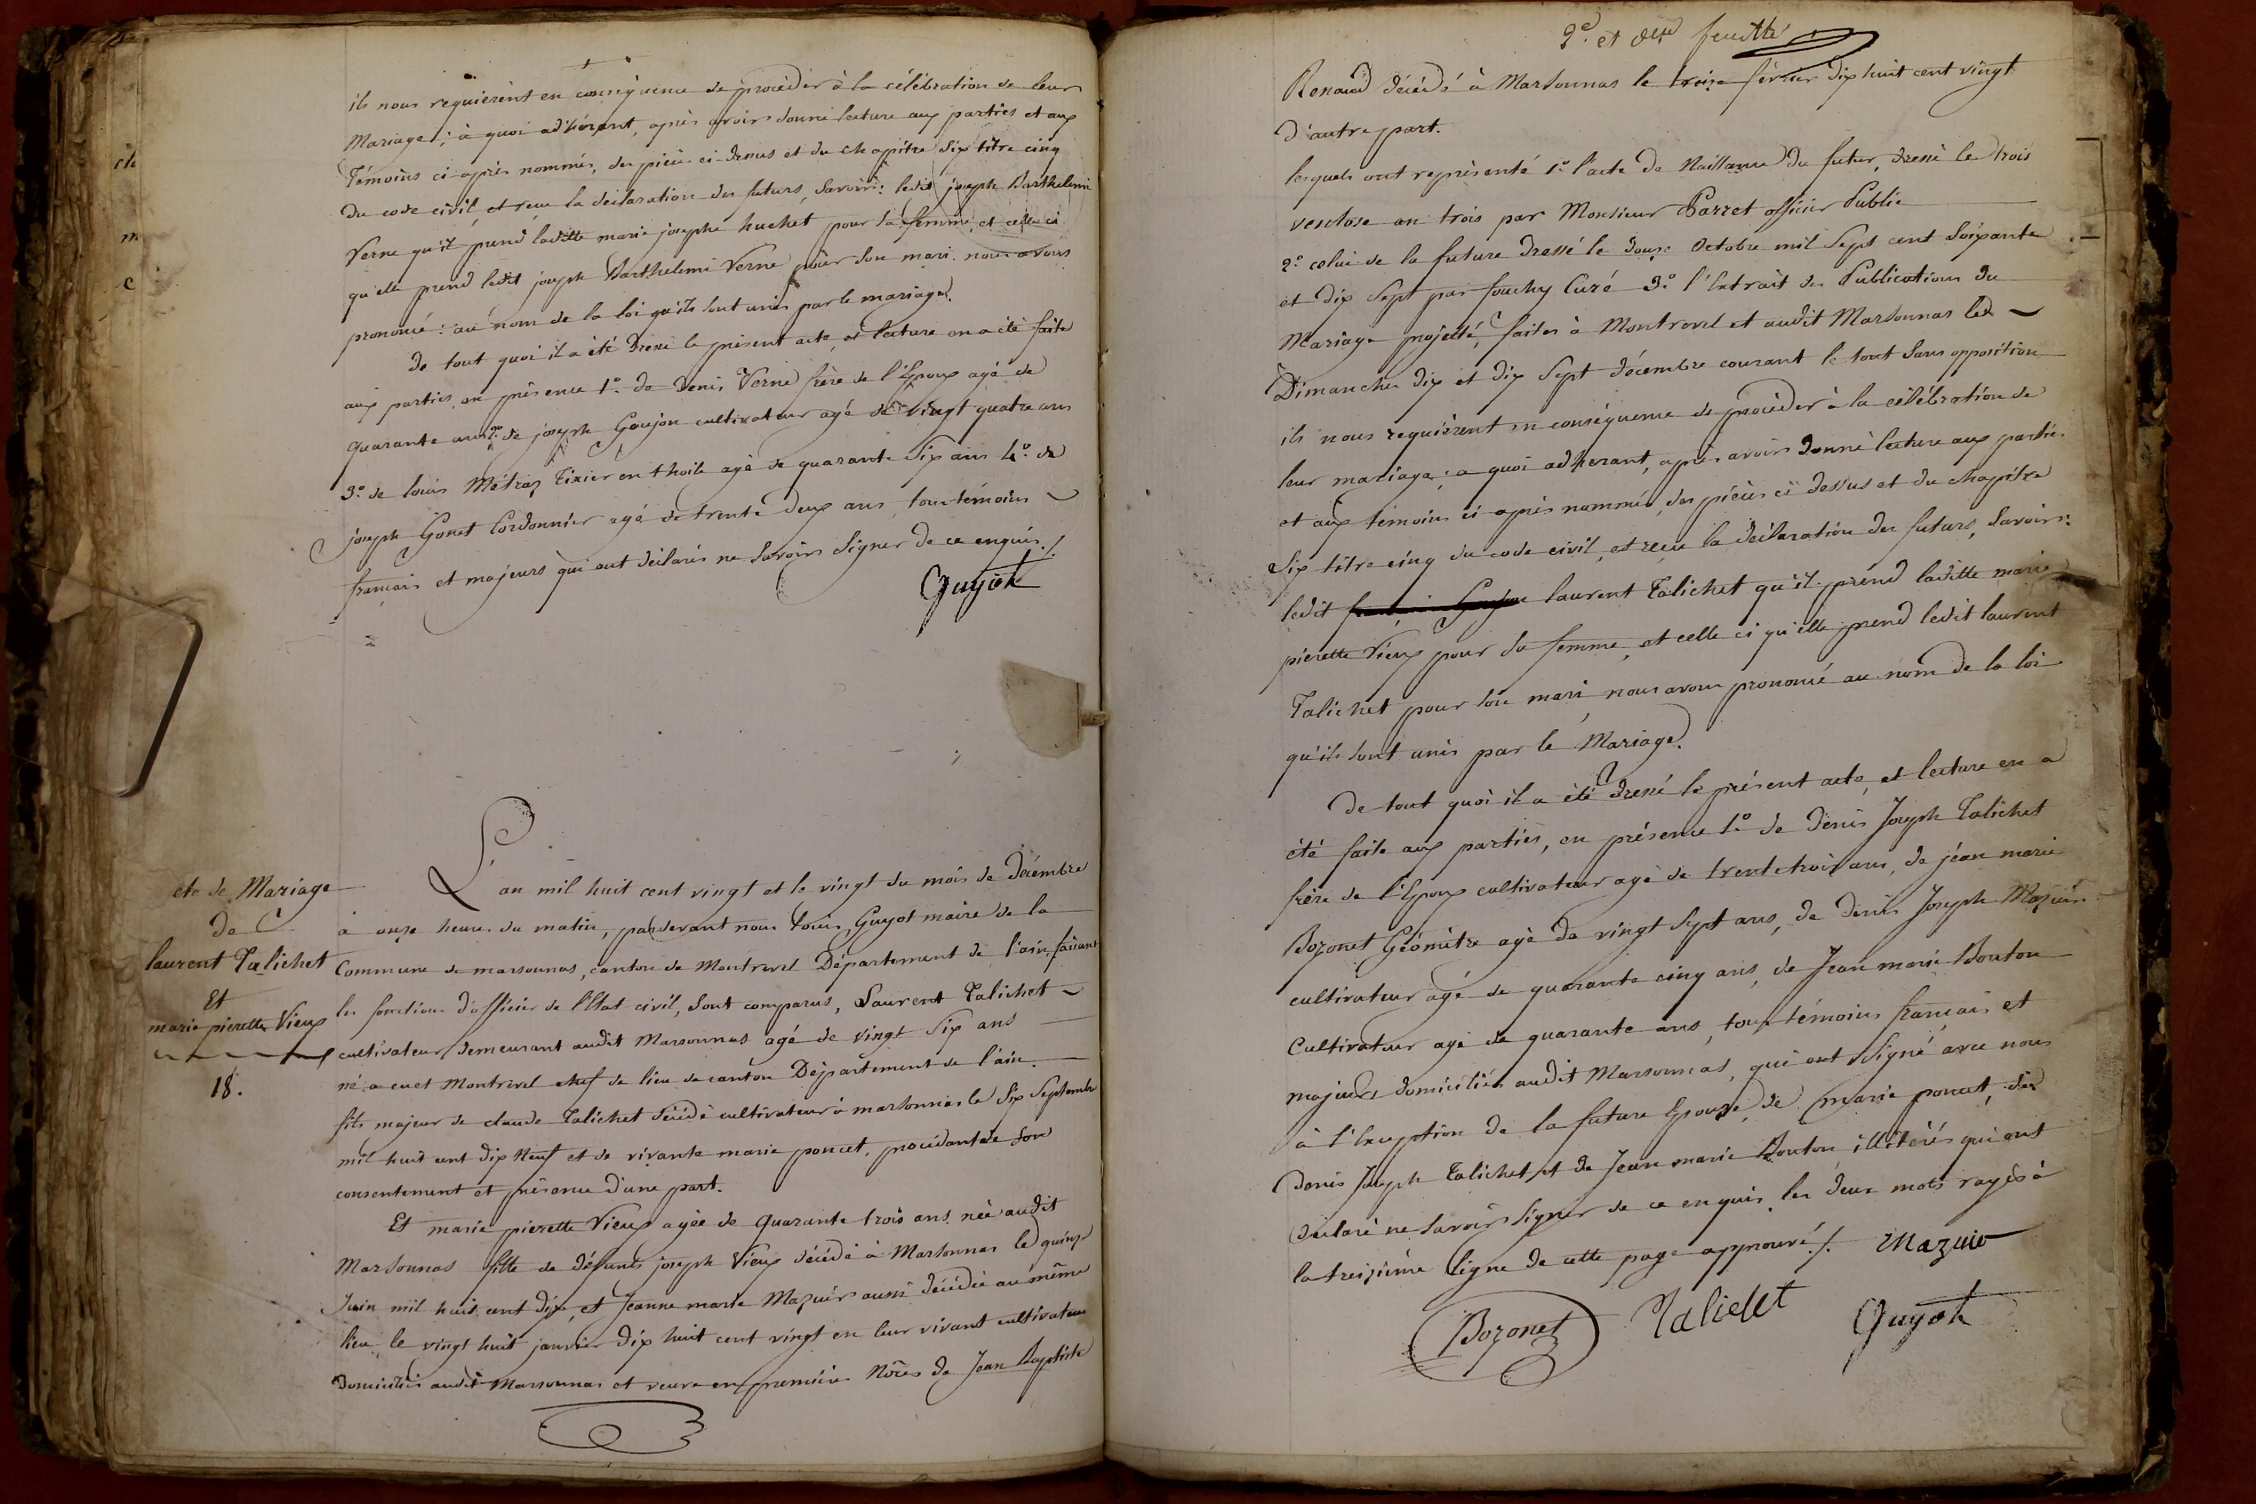 ils nous requierent en conséquence de procéder à la célébration de leur
Mariage; à quoi adhérant, après avoir donné lecture aux parties et aux
Témoins ci-après nommés, des pièces ci-dessus et du chapitre Six titre cinq
du code civil, et reçu la déclaration des futurs, Savoir: ledit joseph Barthelemi
Verne qu'il prend laditte marie josephe huchet pour sa femme, et celle ci
qu'elle prend ledit joseph Barthelemi Verne pour son mari. nous avons
prononcé: au nom de la loi qu'ils sont unis par le mariage.
De tout quoi il a été dressé le présent acte, et lecture en a été faite
aux parties, en présence 1.º de Denis Verne frère de l'Epoux agé de
quarante ans 2.º de joseph Goujon cultivateur agé de vingt quatre ans
3.º de louis Métraz Tixier en thoile agé de quarante Six ans 4.º de
joseph Gonet Cordonnier agé de trente deux ans, tous témoins
français et majeurs qui ont déclarés ne Savoir Signer de ce enquis ./.
Guyot
cte de Mariage
De
laurent Talichet
Et
marie pierette Vieux
18.
L'an mil huit cent vingt et le vingt du mois de Décembre
à onze heures du matin, pardevant nous Louis Guyot maire de la
Commune de marsonnas, canton de Montrevel Département de l'ain, faisant
les fonctions d'officier de l'Etat civil, Sont comparus, Laurent Talichet
cultivateur demeurant audit Marsonnas agé de vingt Six ans
né a cuet Montrevel chef de lieu de canton Département de l'ain.
fils majeur de claude Talichet décédé cultivateur à marsonnas le Six Septembre
mil huit cent dix Neuf et de vivante marie poncet, procédant de son
consentement et présence d'une part.
Et marie pierette Vieux agée de quarante trois ans née audit
Marsonnas fille de défunts joseph Vieux décédé à Marsonnas le quinze
Juin mil huit cent dix, et Jeanne marie Mazuir aussi décédée au même
lieu le vingt huit janvier dix huit cent vingt en leur vivant cultivateurs
domiciliés audit Marsonnas et veuve en première Nôces de Jean Baptiste
2.e et der feuille
Renaud décédé à Marsonnas le treize février dix huit cent vingt
D'autre part.
lesquels ont représenté 1.º l'acte de Naissance du futur, dressé le trois
ventose an trois par Monsieur Parret officier Public
2.º celui de la future dressé le douze Octobre mil Sept cent Soixante
et dix Sept par fouchy Curé 3.º l'Extrait des Publications du
Mariage projetté, faites à Montrevel et audit Marsonnas les
Dimanches dix et dix Sept décembre courant le tout Sans opposition
ils nous requièrent en conséquence de procéder à la célébration de
leur mariage; a quoi adhérant, après avoir donné lecture aux parties
et aux témoins ci après nommés, des pièces ci dessus et du chapitre
Six titre cinq du code civil, et reçu la déclaration des futurs, Savoir:
ledit laurent Talichet qu'il prend laditte marie
pierette Vieux pour Sa femme, et celle ci qu'elle prend ledit laurent
Talichet pour son mari nous avons prononcé au nom de la loi
qu'ils sont unis par le Mariage.
De tout quoi il a été dressé le présent acte, et lecture en a
été faite aux parties, en présence 1.º de Denis Joseph Talichet
frère de l'Epoux cultivateur agé de trente trois ans, de jean marie
Bozonet Géomètre agé de vingt Sept ans, de Denis Joseph Mazuir
cultivateur agé de quarante cinq ans, de Jean marie Bouton
Cultivateur agé de quarante ans, tous témoins français et
majeurs domiciliés audit Marsonnas, qui ont Signé avec nous
à l'Exception de la future Epouse, de marie poncet, de
Denis Joseph Talichet, et de Jean marie Bouton illitérés qui ont
Déclaré ne Savoir Signer de ce enquis. les deux mots rayés à
la treizième ligne de cette page approuvé ./. Mazuir
Bozonet Talichet Guyot